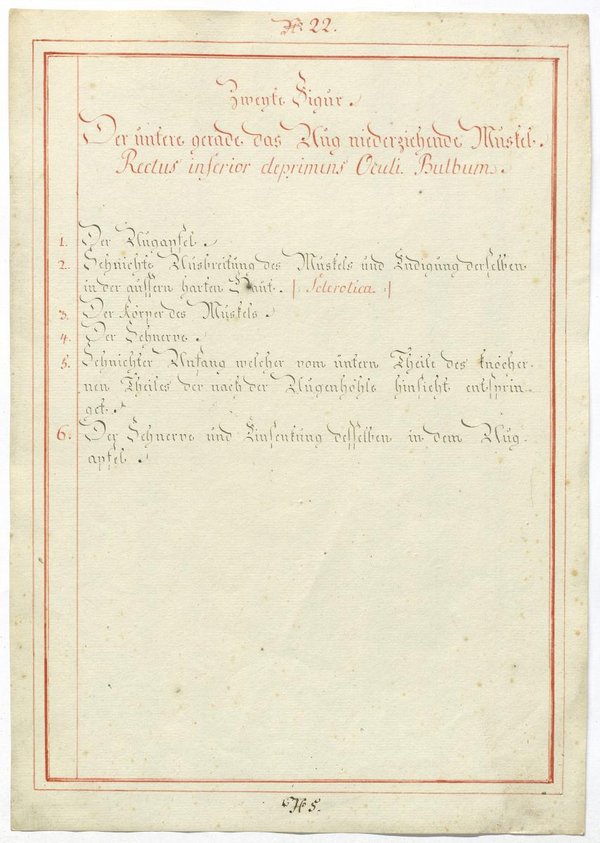 № 22.
Zweyte Figur.
Der untere gerade das Aug niederziehende Muskel.
Rectus inferior deprimens Oculi Bulbum.
1. Der Augapfel.
2. Sehnichte Ausbreitung des Muskels und Endigung derselben
in der äussern harten Haut. | Sclerotica |
3. Der Körper des Muskels.
4. Der Sehnerve.
5. Sehnichter Anfang welcher vom untern Theile des knöcher-
nen Theiles der nach der Augenhöhle hinsieht entsprin-
get.
6. Der Sehnerve und Einsenkung desselben in dem Aug-
apfel.
№ 5.